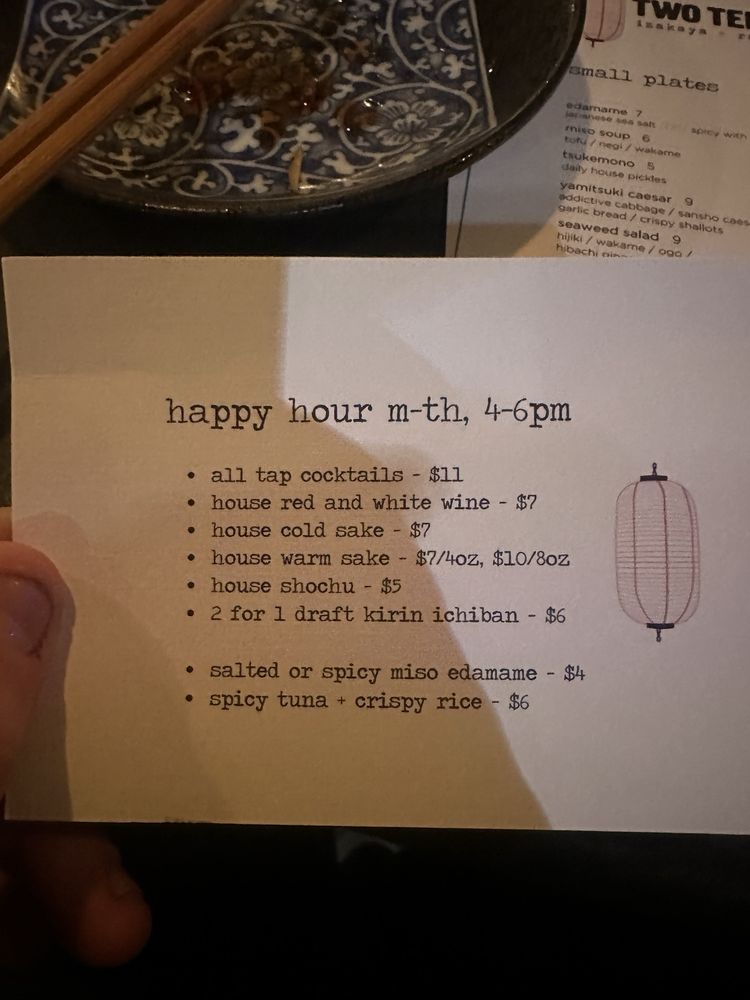 TWO TE
izakaya
small plates
edamame 7
japanese sea salt spicy with
miso soup 6
tofu / negi / wakame
tsukemono 5
daily house pickles
yamitsuki caesar 9
addictive cabbage / sansho caes
garlic bread / crispy shallots
seaweed salad 9
hijiki / wakame / ogo /
hibachi
happy hour m-th, 4-6pm
• all tap cocktails - $11
• house red and white wine - $7
• house cold sake - $7
• house warm sake - $7/4oz, $10/8oz
• house shochu - $5
• 2 for 1 draft kirin ichiban - $6
• salted or spicy miso edamame - $4
• spicy tuna + crispy rice - $6